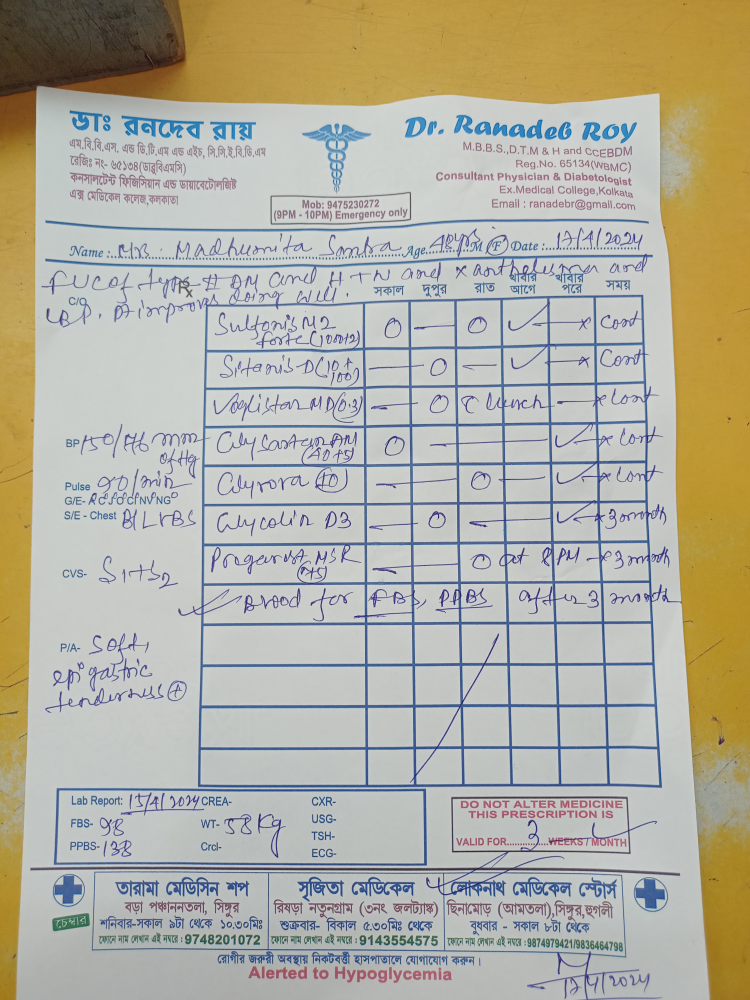 ডাঃ রনদেব রায়
এম.বি.বি.এস, এন্ড ডি.টি.এম এন্ড এইচ, সি.সি.ই.বি.ডি.এম
রেজিঃ নং- ৬৫১৩৪(ডাব্লুবিএমসি)
কনসালটেন্ট ফিজিসিয়ান এন্ড ডায়াবেটোলজিষ্ট
এক্স মেডিকেল কলেজ,কলকাতা
Dr. Ranadeb Roy
M.B.B.S.,D.T.M & H and CCEBDM
Reg.No. 65134(WBMC)
Consultant Physician & Diabetologist
Ex.Medical College,Kolkata
Email : ranadebr@gmail.com
Mob: 9475230272
(9PM - 10PM) Emergency only
Name : Mrs. Madhumita Santra Age 40yrs M (F) Date : 17/4/2024
FUC of type II DM and HTN and xanthelesmea and
C/O BP. Pt improves doing well.
Rx
সকাল দুপুর রাত খাবার আগে খাবার পরে সময়
Sulfonis M2 forte (1000+2) O — O ✓ — x Cont
Sitanis-D (10+100) — O — ✓ — x Cont
Voglistar MD (0.3) — O c Lunch — x Cont
BP 150/76 mm of Hg
Glysartan AM (40+5) O — ✓ x Cont
Pulse 90/min
Glyrora (10) — O — x Cont
G/E-
S/E - Chest B/L VBS
Glycolin D3 — O — ✓ x 3 month
CVS- S1+S2
MSR (75) — O at 8 PM — x 3 month
✓ Blood for FBS, PPBS after 3 month
P/A- Soft,
epigastric
tenderness (+)
Lab Report: 15/4/2024 CREA- CXR-
FBS- 98 WT- 58 Kg USG-
PPBS- 138 Crcl- TSH-
ECG-
DO NOT ALTER MEDICINE
THIS PRESCRIPTION IS
VALID FOR 3 WEEKS / MONTH
চেম্বার
তারামা মেডিসিন শপ
বড়া পঞ্চাননতলা, সিঙ্গুর
শনিবার-সকাল ৯টা থেকে ১০.৩০মিঃ
ফোনে নাম লেখান এই নম্বরে : 9748201072
সৃজিতা মেডিকেল
রিষড়া নতুনগ্রাম (৩নং জলট্যাঙ্ক)
শুক্রবার- বিকাল ৫.৩০মি থেকে
ফোনে নাম লেখান এই নম্বরে : 9143554575
লোকনাথ মেডিকেল স্টোর্স
ছিনামোড় (আমতলা),সিঙ্গুর,হুগলী
বুধবার - সকাল ৮টা থেকে
ফোনে নাম লেখান এই নম্বরে : 9874979421/9836464798
রোগীর জরুরী অবস্থায় নিকটবর্ত্তী হাসপাতালে যোগাযোগ করুন।
Alerted to Hypoglycemia
17/4/2024